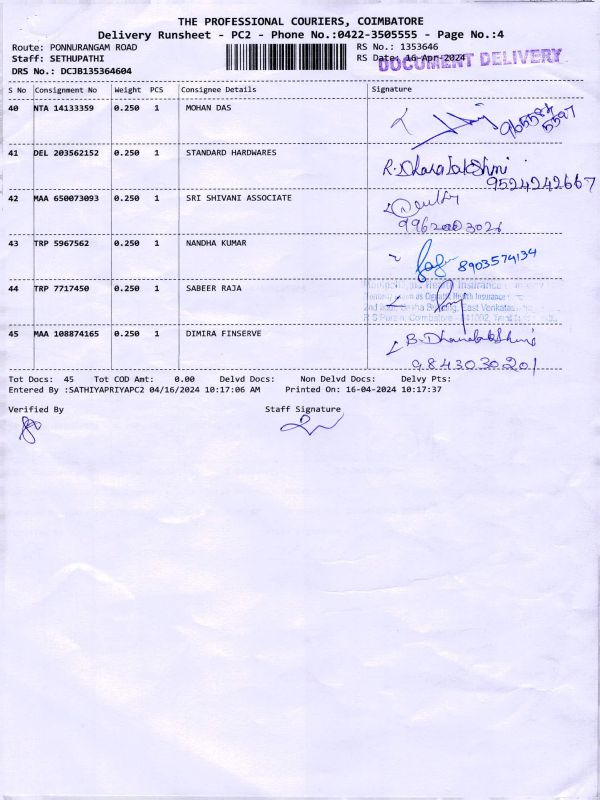 THE PROFESSIONAL COURIERS, COIMBATORE
Delivery Runsheet - PC2 - Phone No.:0422-3505555 - Page No.:4
Route: PONNURANGAM ROAD RS No.: 1353646
Staff: SETHUPATHI RS Date: 16-Apr-2024
DOCUMENT DELIVERY
DRS No.: DCJB135364604
S No Consignment No Weight PCS Consignee Details Signature
40 NTA 14133359 0.250 1 MOHAN DAS
41 DEL 203562152 0.250 1 STANDARD HARDWARES
R. Dhanalakshmi
9524242667
42 MAA 650073093 0.250 1 SRI SHIVANI ASSOCIATE
43 TRP 5967562 0.250 1 NANDHA KUMAR
8903574134
44 TRP 7717450 0.250 1 SABEER RAJA
Health Insurance
as Health Insurance
2nd East Venkatas
R S Puram, Coimbatore
45 MAA 108874165 0.250 1 DIMIRA FINSERVE
B. Dhanalakshmi
9843030201
Tot Docs: 45 Tot COD Amt: 0.00 Delvd Docs: Non Delvd Docs: Delvy Pts:
Entered By :SATHIYAPRIYAPC2 04/16/2024 10:17:06 AM Printed On: 16-04-2024 10:17:37
Verified By Staff Signature